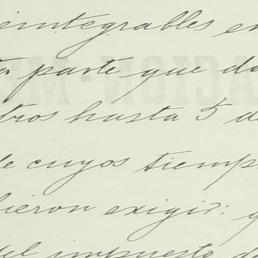 eintegrables en
ta parte que de
tros hasta 5 de
de cuyos tiemp
bieron exigir: q
del impuesto de